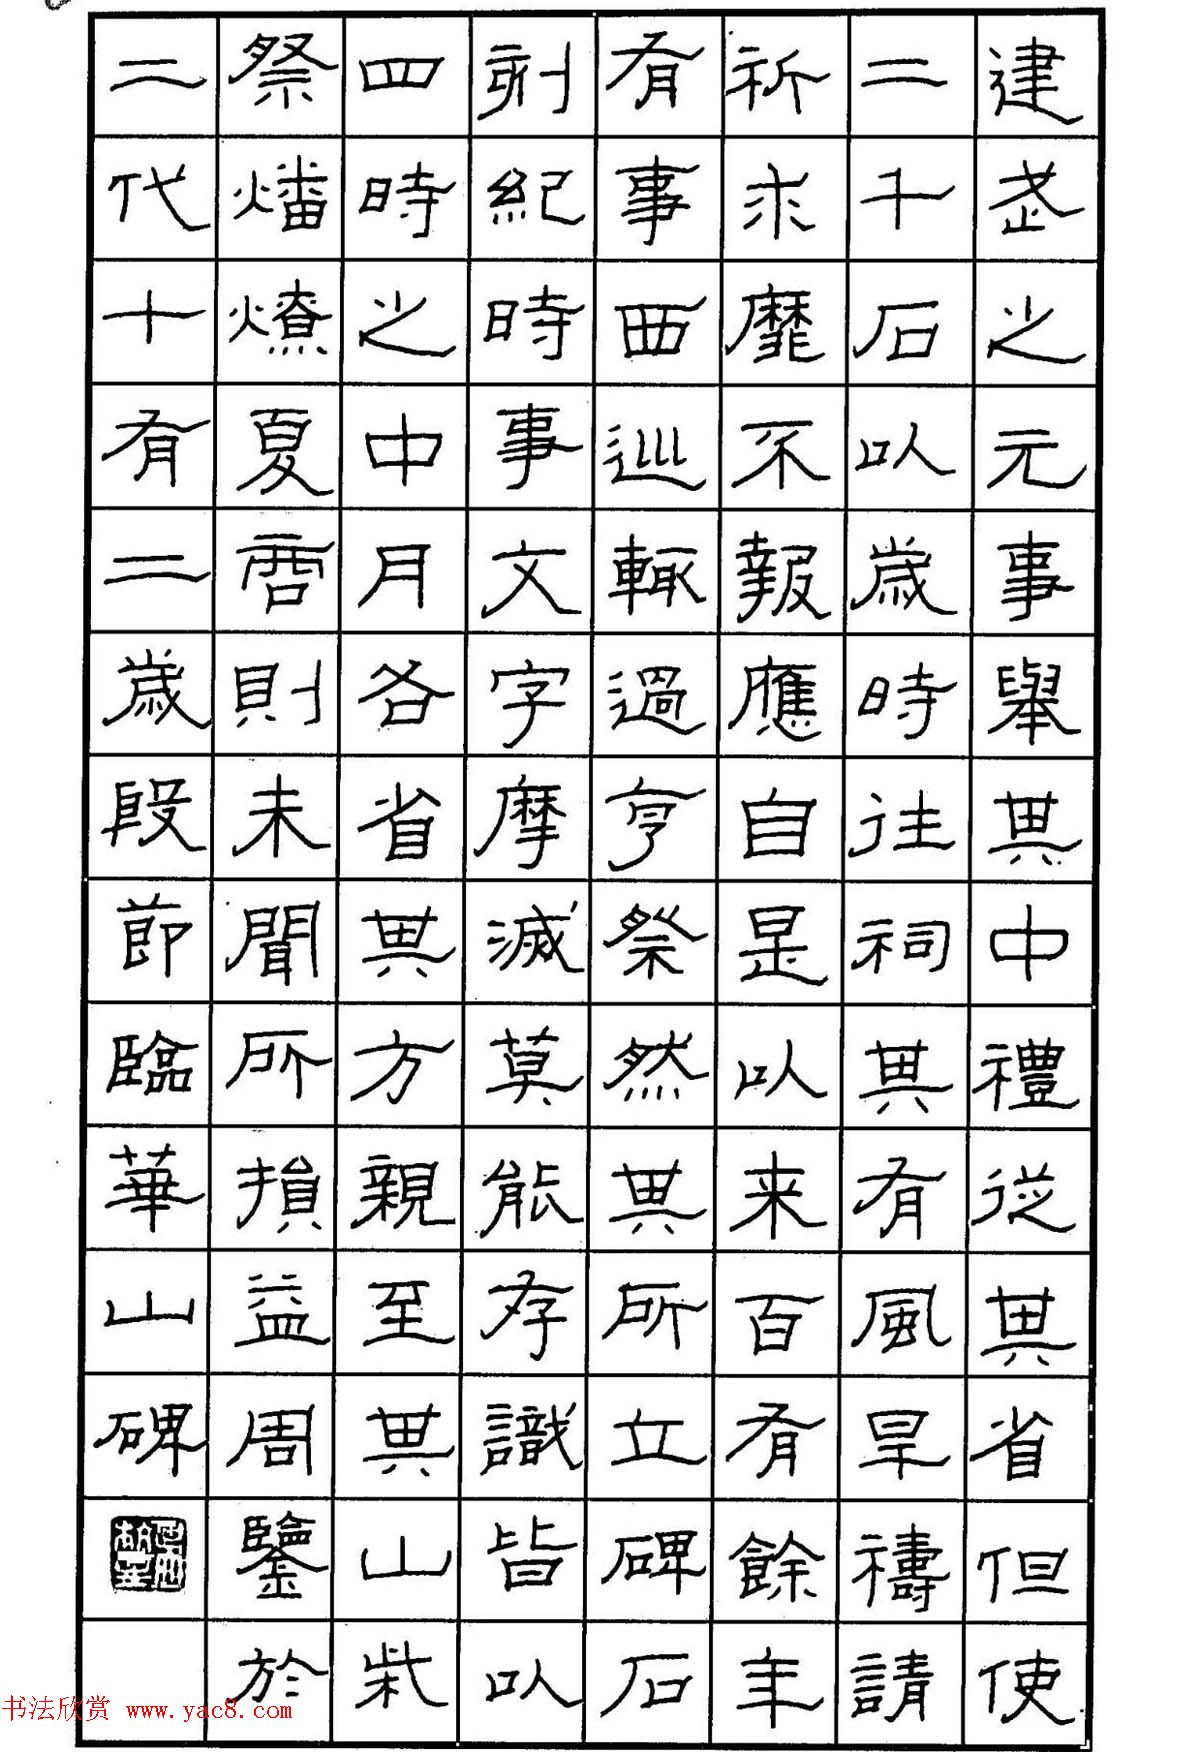 建武之元事舉其中禮從其省但使
二千石以歲時往祠其有風旱禱請
祈求靡不報應自是以来百有餘年
有事西巡輒過亨祭然其所立碑石
刻紀時事文字摩滅莫能存識皆以
四時之中月各省其方親至其山柴
祭燔燎夏商則未聞所損益周鑒於
二代十有二歲段節臨華山碑
书法欣赏 www.yac8.com